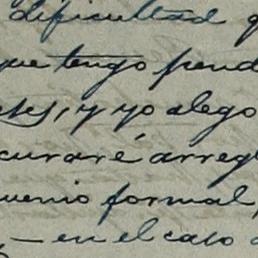 dificultad q
que tengo pend
y yo alego
curaré arreg
venio formal,
— en el caso